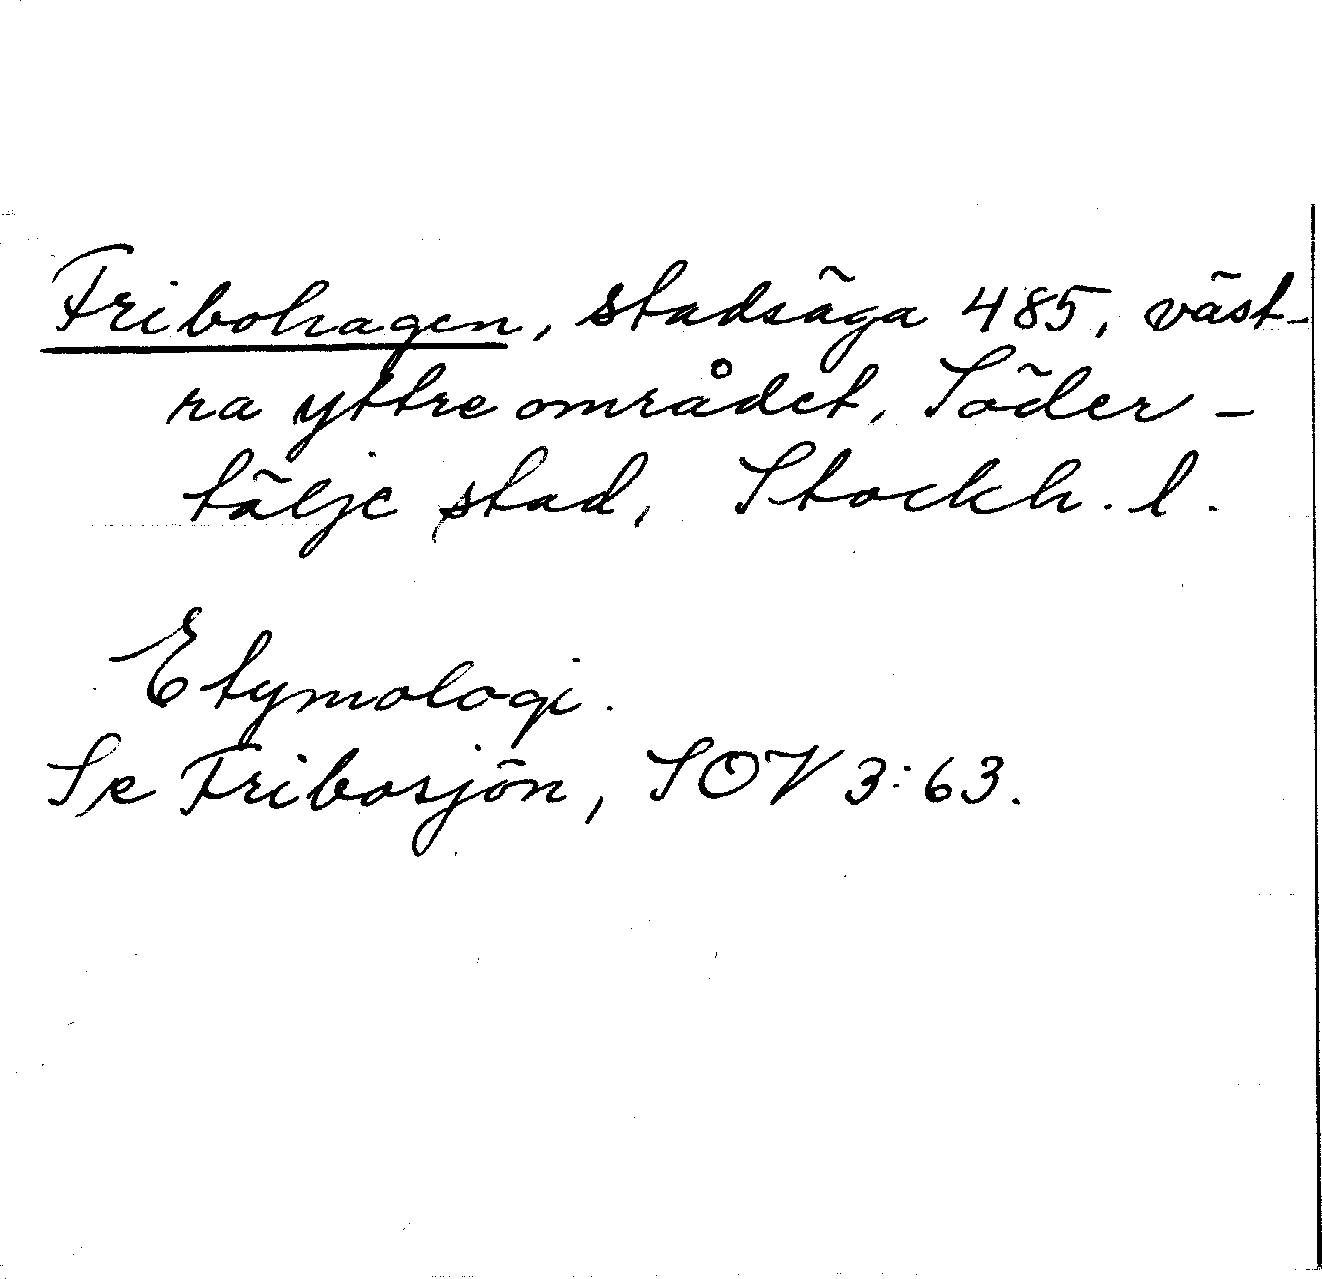 Fribohagen, stadsäga 485, väst-
ra yttre området, Söder-
tälje stad, Stockh. l.
Etymologi.
Se Fribosjön, SOV 3:63.